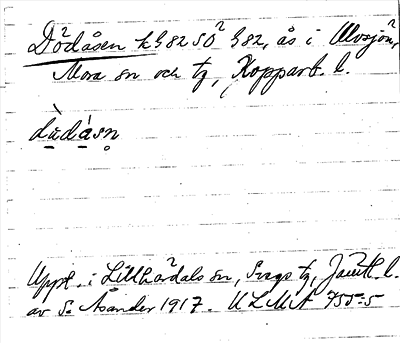 Dödåsen k 982 SÖ² 982, ås i Älvsjön,
Mora sn och tg, Kopparb. l.
dœ̀dásn̥
Uppt. i Lillhärdals sn, Svegs tg, Jämtl. l.
av S. Åsander 1917. ULMA 755:5